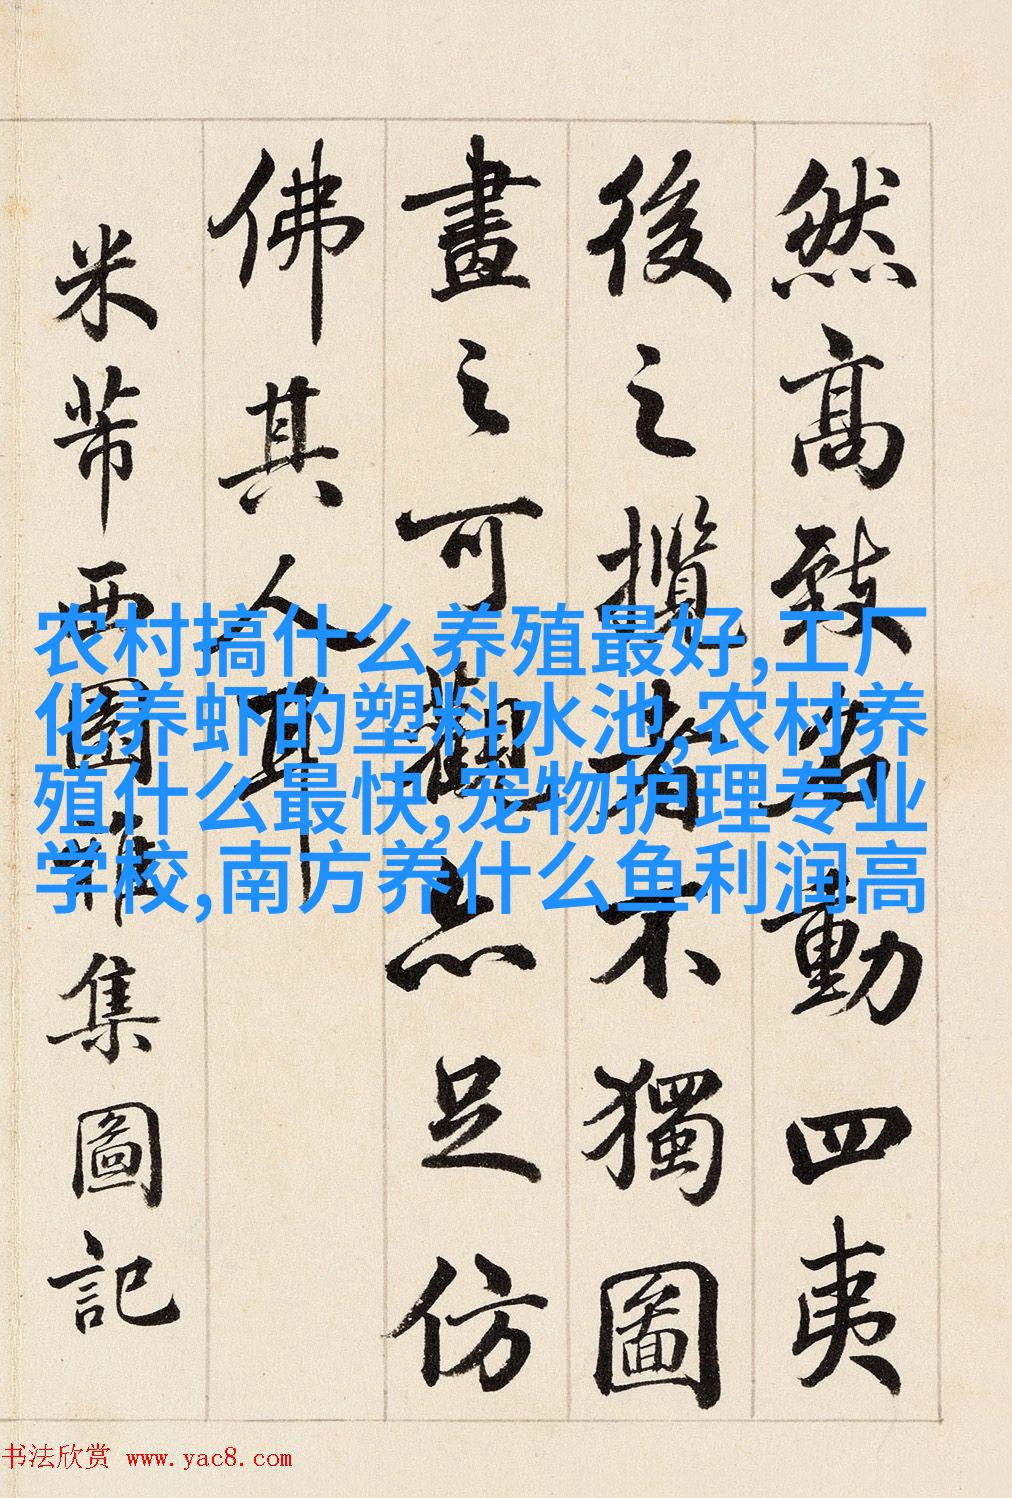 然高致名動四夷
後之攬者不獨圖
畫之可觀亦足仿
佛其人耳
米芾西園雅集圖記
农村搞什么养殖最好,工厂
化养虾的塑料水池,农村养
殖什么最快,宠物护理专业
学校,南方养什么鱼利润高
书法欣赏 www.yac8.com